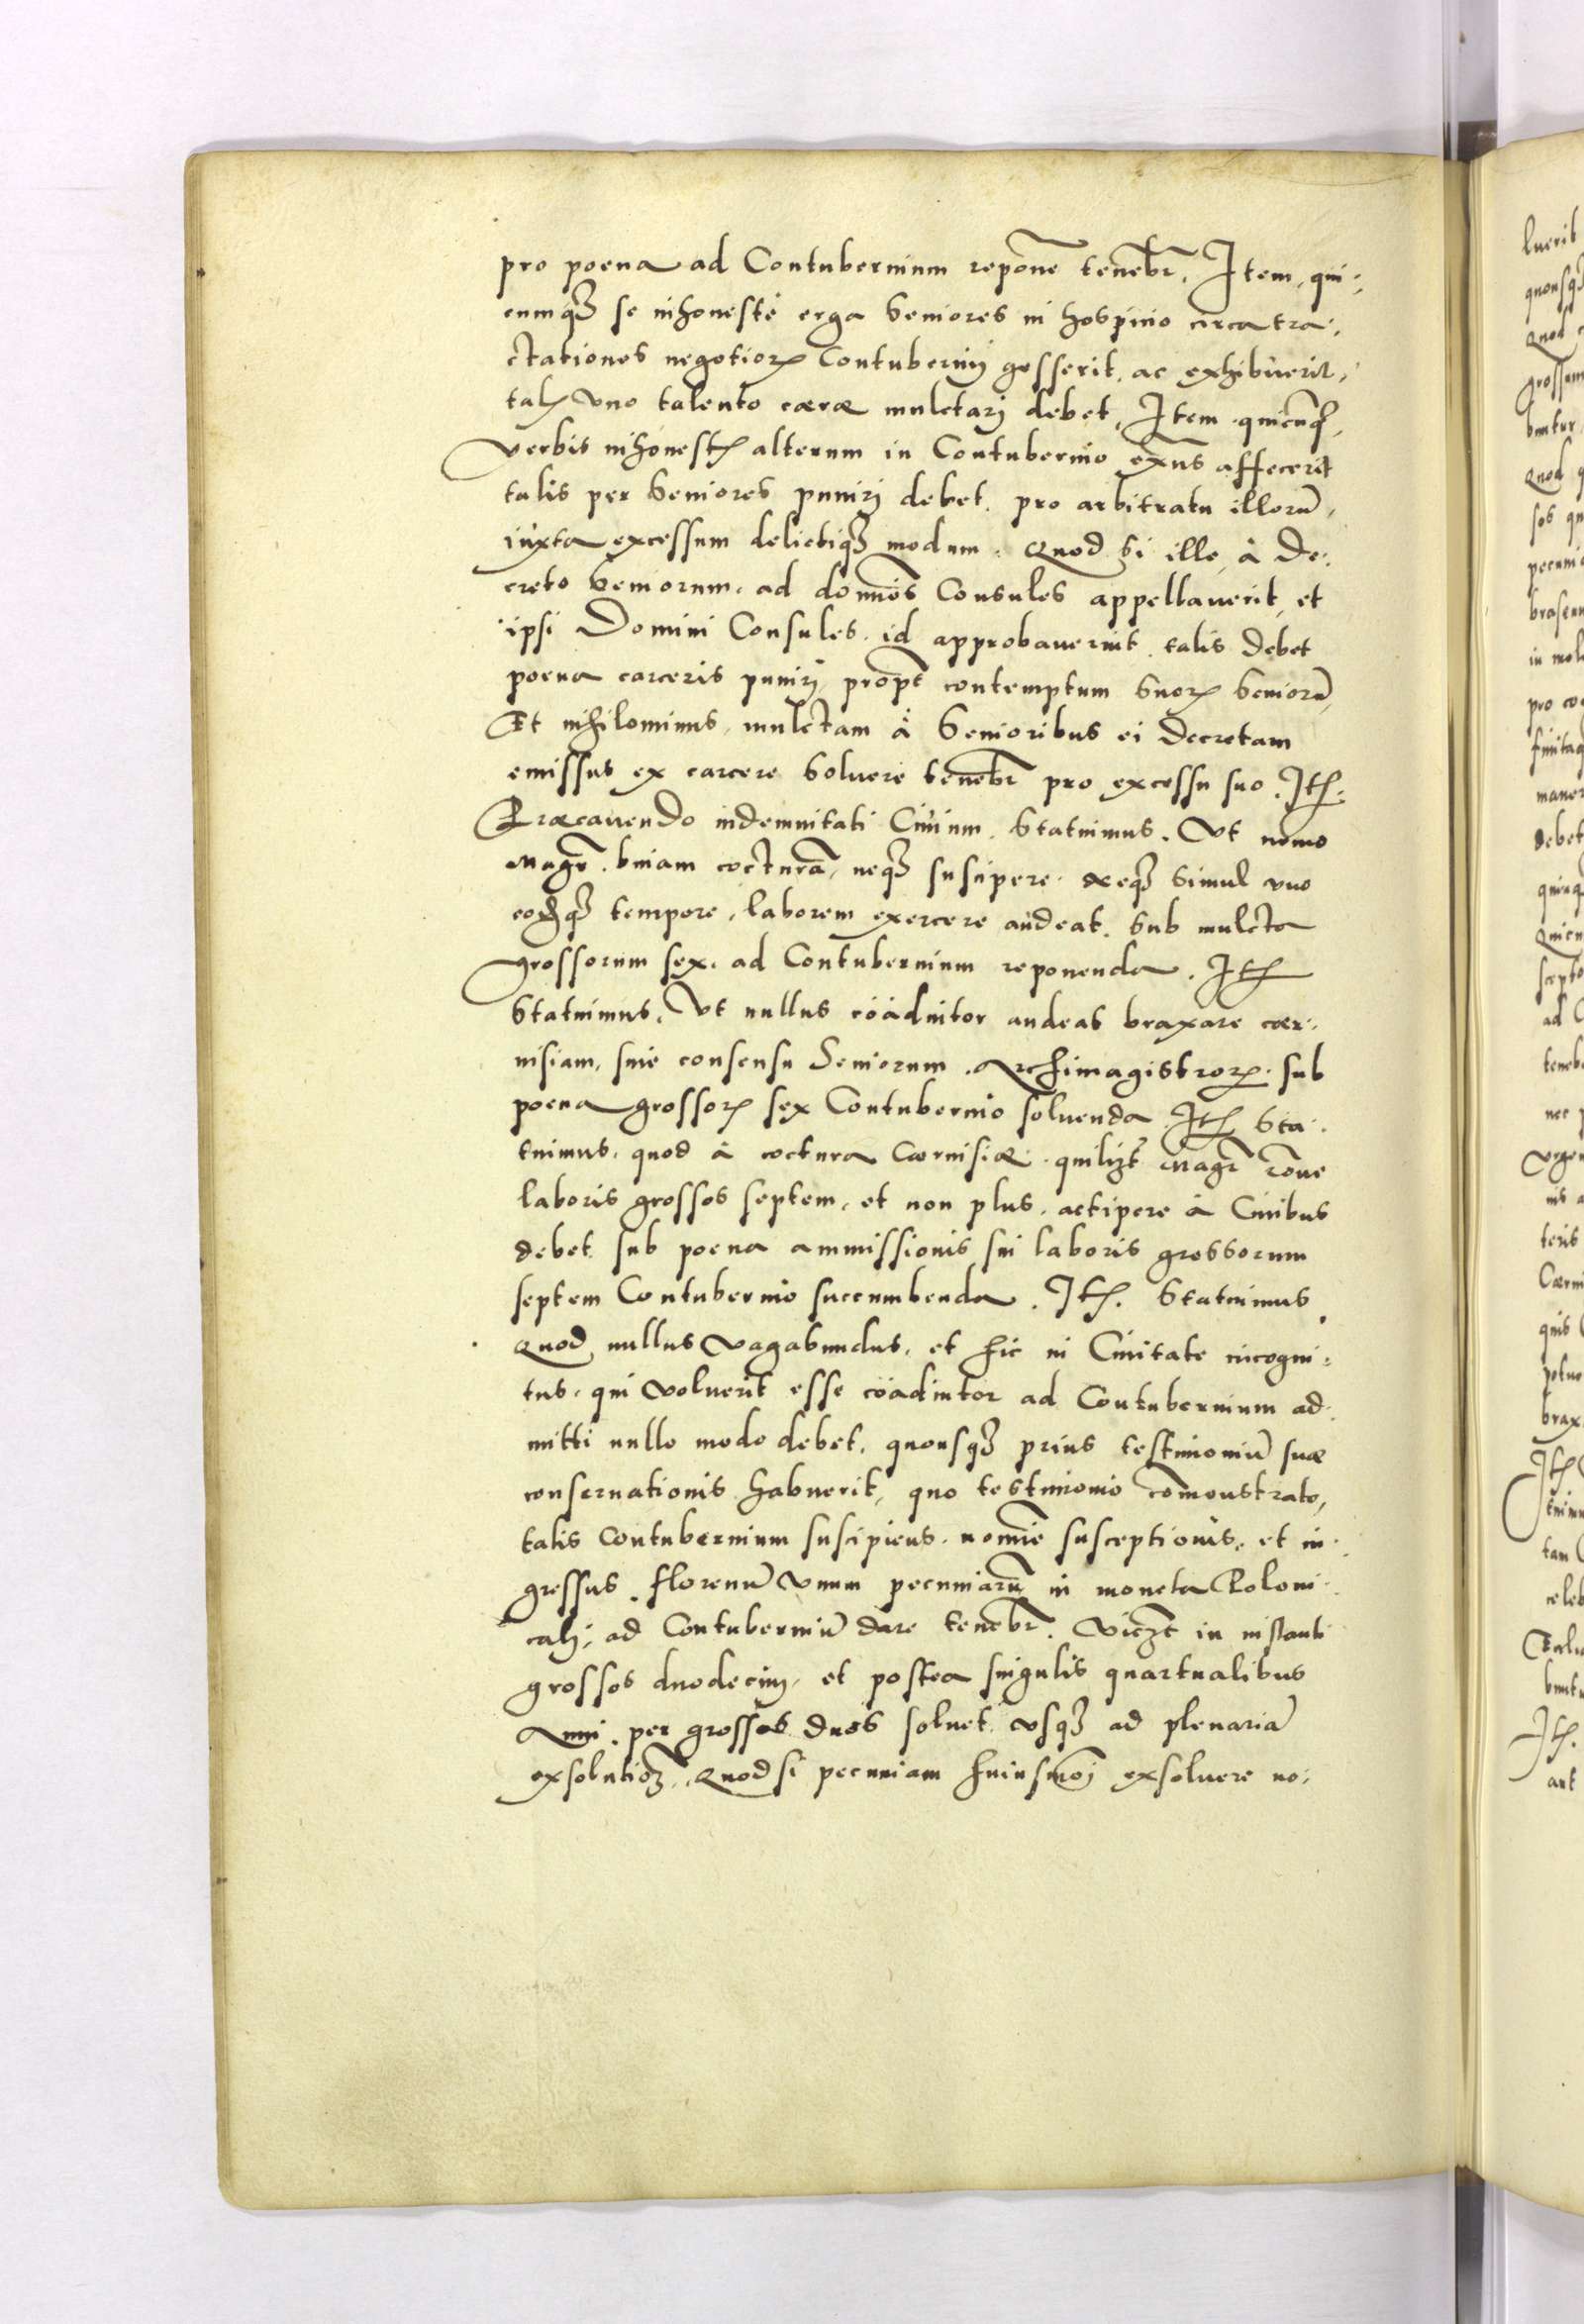 pro poena ad Contubernium repōne tenebr̃. Item, qui-
cumqꝫ se inhonestè erga Seniores in hospicio circa tra-
ctationes negotioꝝ Contubernij gesserit, ac exhibuerit,
talꝭ vno talento cæræ mulctarj debet, Item quicūqꝫ,
verbis inhonestꝭ alterum in Contubernio affecerit
talis per Seniores punirj debet, pro arbitratu illorū,
iuxta excessum delictiqꝫ modum. Quod si ille à De-
creto Seniorum, ad dom̃os Consules appellauerit, et
ipsi Domini Consules id approbauerint, talis debet
poena carceris punirj, propt̃ contemptum suoꝝ Seniorũ,
Et nihilominus, mulctam à Senioribus ei decretam
emissus ex carcere soluere tenebr̃ pro excessu suo. Itꝭ
Præcauendo indemnitati Ciuium, Statuimus, Vt nemo
Magr̃. binam cocturã, neqꝫ suscipere, neqꝫ simul vno
eodqꝫ tempore, laborem exercere audeat, sub mulcta
grossorum sex, ad Contubernium reponenda. Itꝭ
Statuimus, Vt nullus coadiutor audeat braxare cær-
uisiam, sine consensu Seniorum Archimagistroꝝ, sub
poena grossoꝝ sex Contubernio soluenda. Itꝭ Sta-
tuimus, quod à coctura Cæruisiæ, quilizt Magr̃ rōne
laboris grossos septem, et non plus, accipere à Ciuibus
debet sub poena ammissionis sui laboris grossorum
septem Contubernio succumbenda. Itꝭ. Statuimus
Quod nullus vagabundus, et hic in Ciuitate incogni-
tus, qui voluerit esse coadiutor ad Contubernium ad-
mitti nullo modo debet, quousqꝫ prius testimoniũ suæ
conseruationis habuerit, quo testimonio cōmonstrato,
talis Contubernium suscipiens, nomĩe susceptionis, et in-
gressus, florenũ vnum pecuniarũ in moneta Poloni-
calj, ad Contuberniũ dare tenebr̃. Viczt in instanti
grossos duodecim, et postea singulis quartualibus
Anni, per grossos duos soluet vsqꝫ ad plenariã
exsolutioꝫ. Quod si pecuniam huiusmōj exsoluere no-